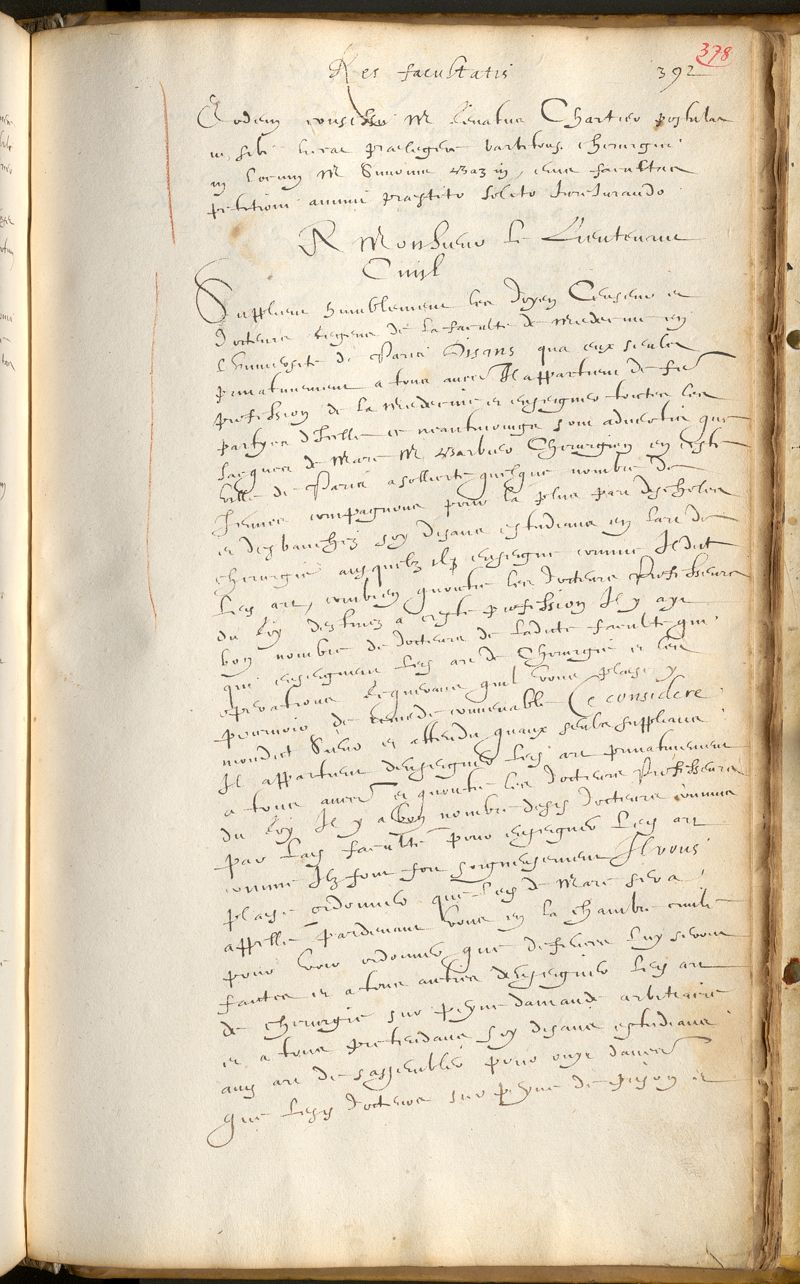 378
Res facultatis 392
Eodem consessu M Renatus Chartier postulat
ut sibi liceat praelegere barbitons. chirurgis
in locum M Simonis Bazin, eius facultas
petitioni annuit praestito solito Jurejurando
A Monsieur le Lieutenant
Civil
Supplient humblement les doyen Censeur et
docteurs regens de la faculte de medecine en
l'Université de Paris disans qua eux seuls
privativement a tous autres Il appartient de fre
profession de la medecine et enseigner toutes les
partyes dIcelle et neantmoings sont advertis que
Jacques de Marc M Barbier Chirurgien en ceste
ville de Paris a sollicite quelque nombre de
Jeunes compagnons pour la plus part descholes
et desbauchez soy disans estudians en lart de
chirurgie ausquelz Ilz enseigne comme Il dit
lesd art, combien quoutre les docteurs professeurs
du Roy destinez a ceste profession Il y ayt
bon nombre de docteurs de ladicte faculte qui
qui enseignent lesd art de Chirurgie et les
operations Requerans quil vous plaise y
pourvoir de remede convenable Ce considere
mondict Sieur et attendu quaux seuls supplians
Il appartient denseigner lesd art privativement
a tous autres et quoutre les docteurs professeurs
du Roy Il y a bon nombre desd docteurs comme
par lad faculté pour enseigner lesd art
comme Ilz font fort soigneusement Il vous
plaise ordonner que led de Marc sera
appellé pardevant vous en la chambre civile
pour voir ordonner que deffences luy seront
faictes et a tous autres denseigner lesd art
de chirurgie sur peyne damande arbitraire
et a tous pretendans soy disans estudians
aud art de sassembler pour ouyr dautres
que lesd docteurs sur peyne de prison et